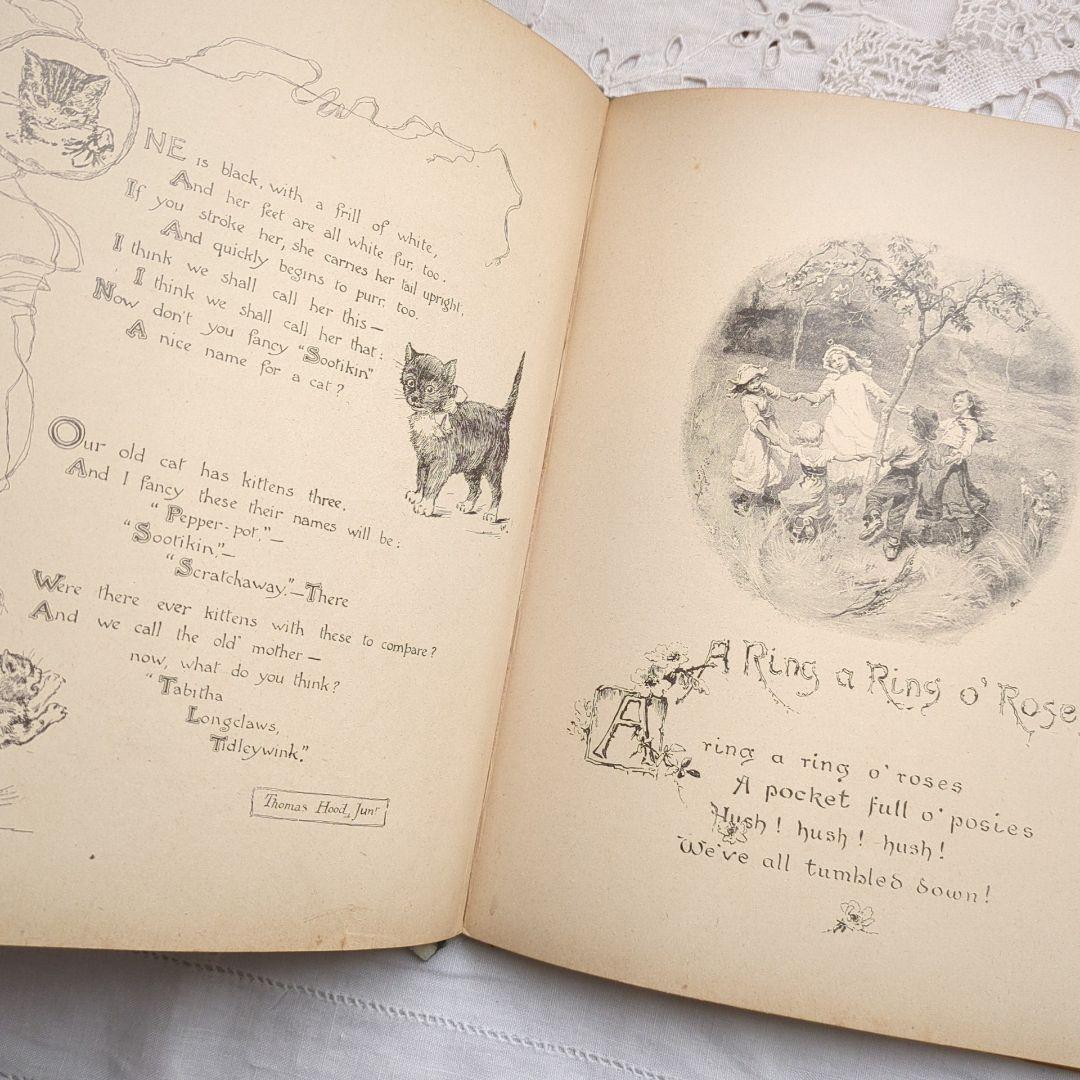 ONE is black, with a frill of white,
And her feet are all white fur, too.
If you stroke her, she carries her tail upright,
And quickly begins to purr, too.
I think we shall call her this —
I think we shall call her that :
Now don't you fancy "Sootikin"
A nice name for a cat?
Our old cat has kittens three,
And I fancy these their names will be :
"Pepper-pot," —
"Sootikin," —
"Scratchaway." — There
Were there ever kittens with these to compare?
And we call the old mother —
now, what do you think?
"Tabitha
Longclaws,
Tidleywink."
Thomas Hood, Junr
A Ring a Ring o' Rose
A ring a ring o' roses
A pocket full o' posies
Hush! hush! hush!
We've all tumbled down!